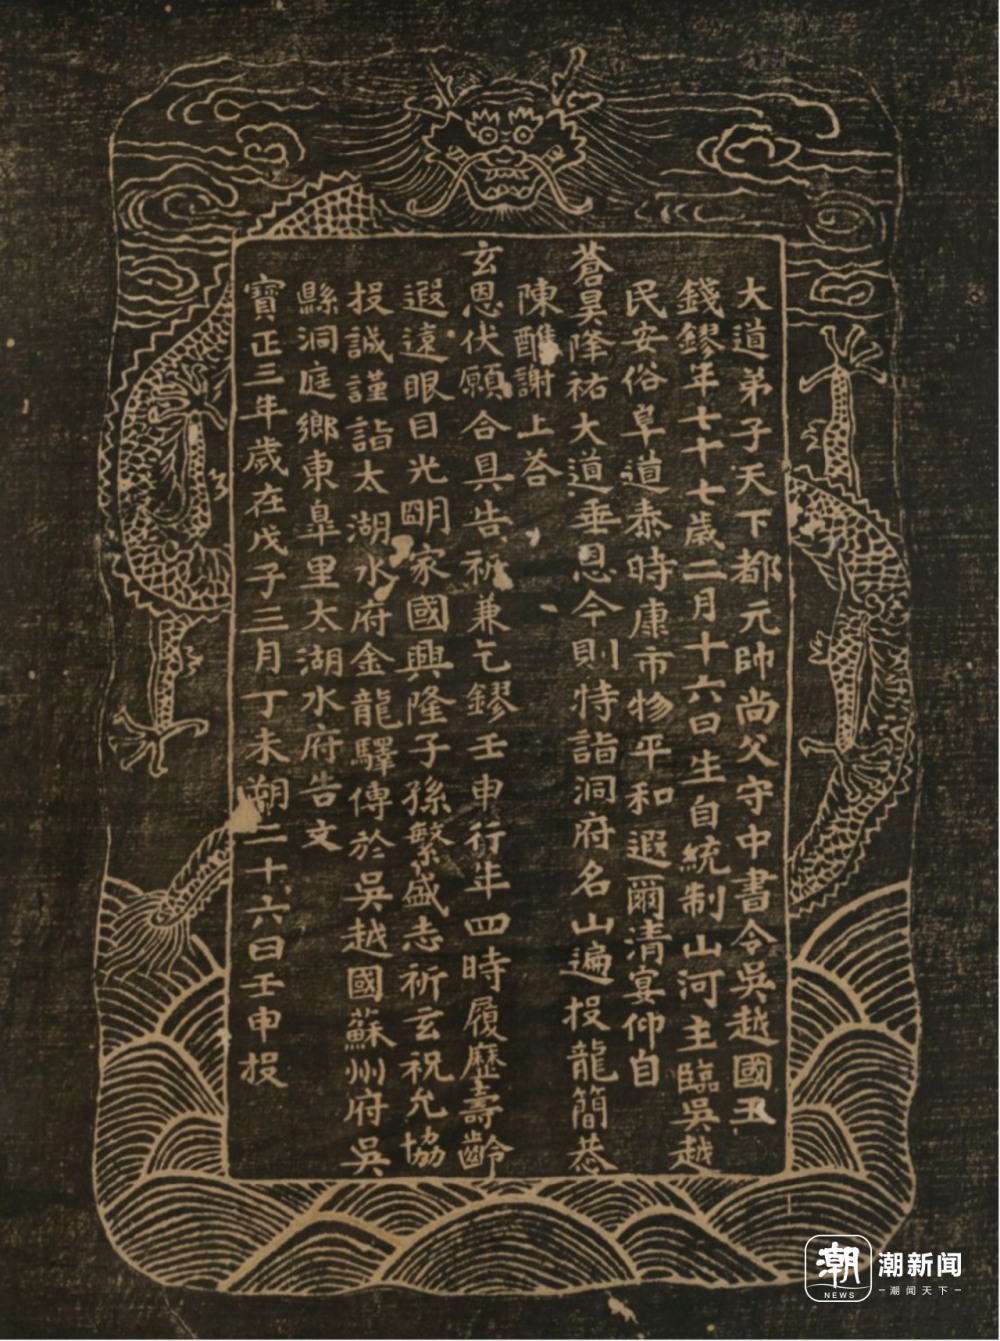 大道弟子天下都元帥尚父守中書令吳越國王
錢鏐年七十七歲二月十六日生自統制山河主臨吳越
民安俗阜道泰時康市物平和遐爾清宴仰自
蒼昊降祐大道垂恩今則特詣洞府名山遍投龍簡恭
陳醮謝上荅
玄恩伏願合具告祈兼乞鏐壬申行年四時履歷壽齡
遐遠眼目光明家國興隆子孫繁盛志祈玄祝允協
投誠謹詣太湖水府金龍驛傳於吳越國蘇州府吳
縣洞庭鄉東皐里太湖水府告文
寶正三年歲在戊子三月丁未朔二十六日壬申投
潮 潮新聞
NEWS 潮闻天下